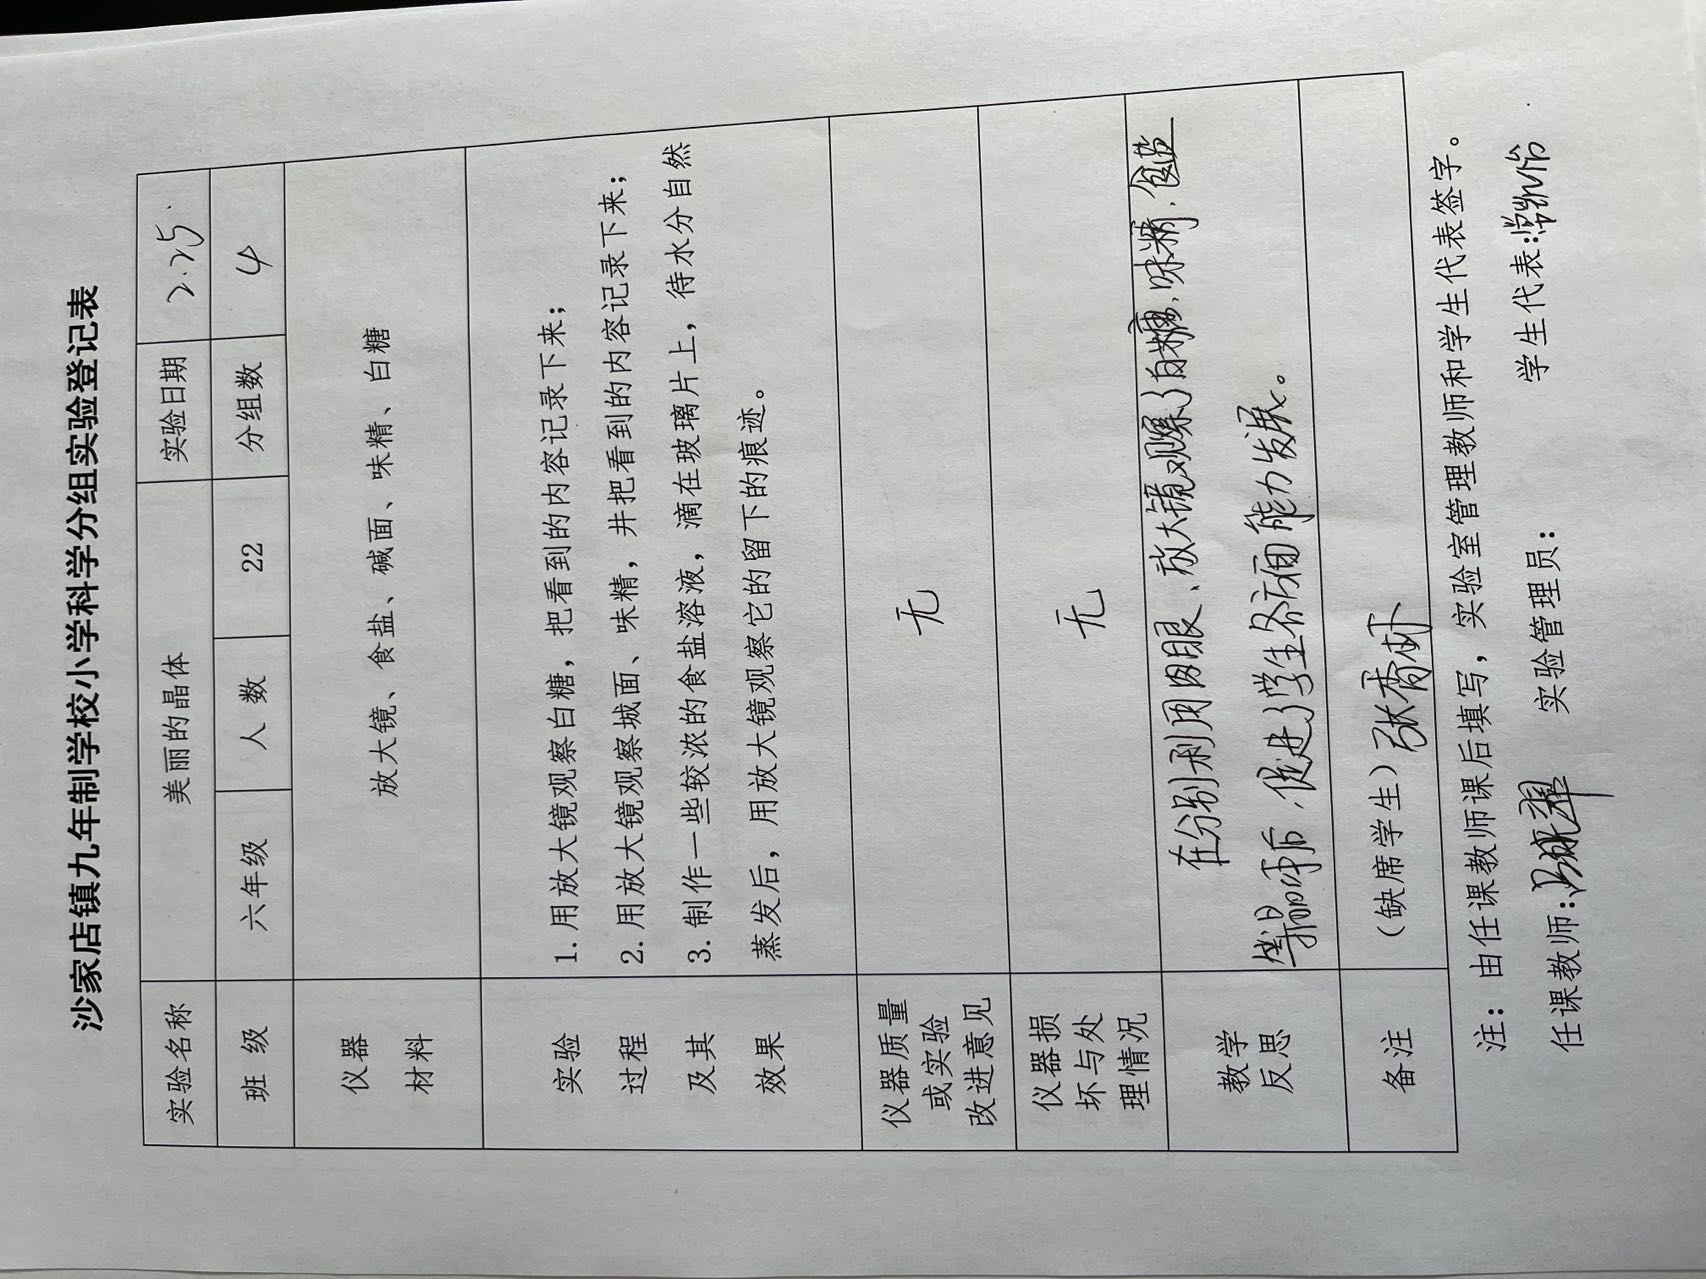 沙家店镇九年制学校小学科学分组实验登记表
实验名称 美丽的晶体 实验日期 2.25
班 级 六年级 人 数 22 分组数 4
仪器
材料
放大镜、食盐、碱面、味精、白糖
实验
过程
及其
效果
1. 用放大镜观察白糖，把看到的内容记录下来；
2. 用放大镜观察城面、味精，井把看到的内容记录下来；
3. 制作一些较浓的食盐溶液，滴在玻璃片上，待水分自然
蒸发后，用放大镜观察它的留下的痕迹。
仪器质量
或实验
改进意见
无
仪器损
坏与处
理情况
无
教学
反思
在分别利用肉眼、放大镜观察了白糖、味精、食盐
等晶体后，促进了学生各方面能力发展。
备注
（缺席学生）张香
注：由任课教师课后填写，实验室管理教师和学生代表签字。
任课教师： 实验管理员： 学生代表：